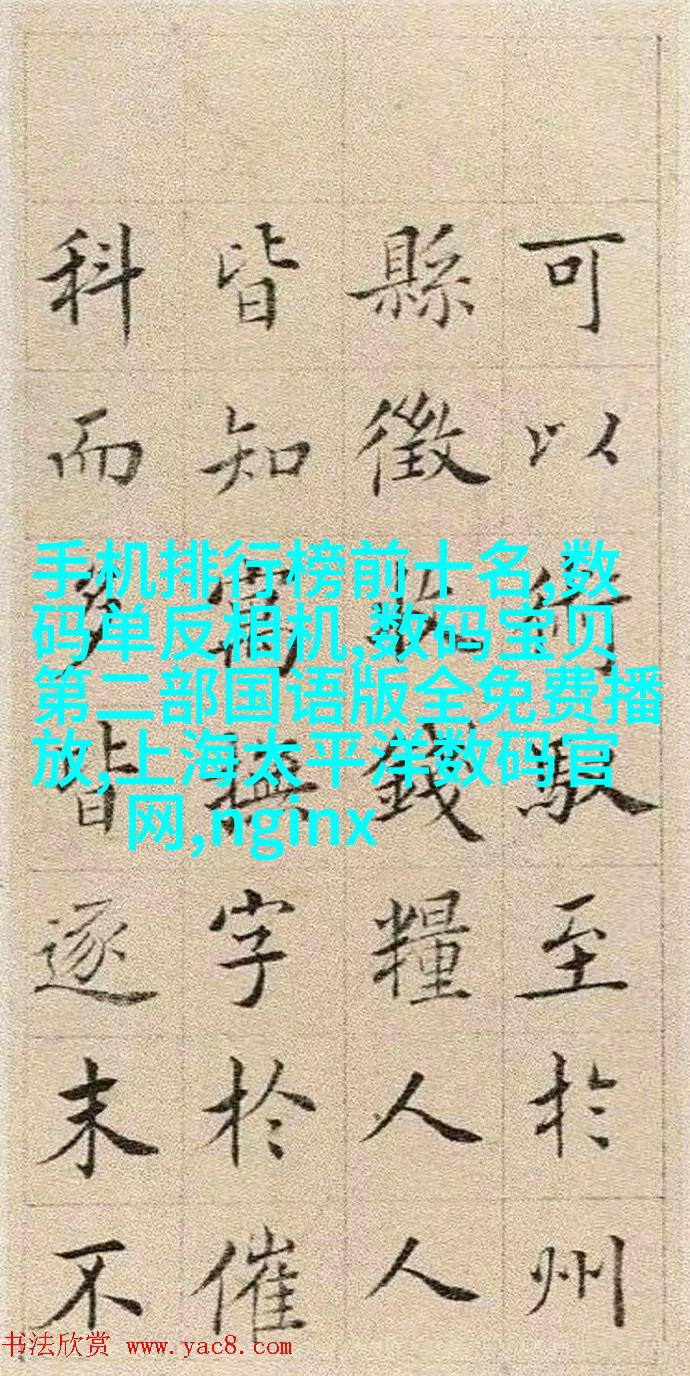 可以術馭至於州
縣徵錢糧人人
皆知寓撫字於催
科而多皆逐末不
手机排行榜前十名,数
码单反相机,数码宝贝
第二部国语版全免费播
放,上海太平洋数码官
网,nginx
书法欣赏 www.yac8.com